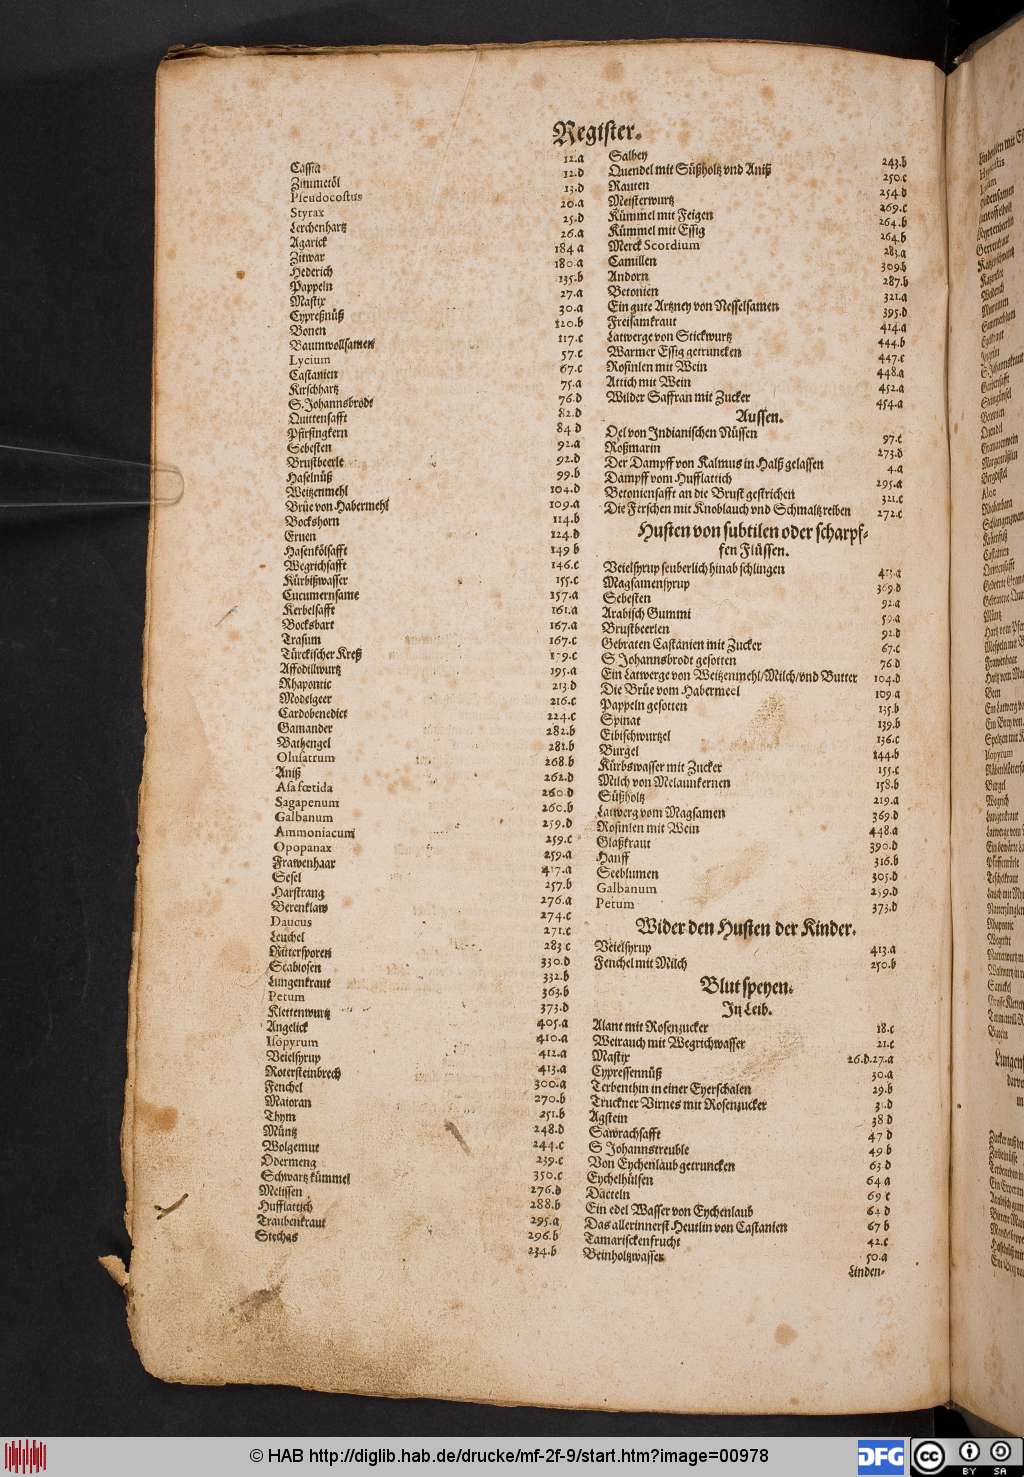 Register.
Cassia 12.a
Zimmetöl 12.d
Pseudocostus 13.d
Styrax 20.a
Lerchenhartz 25.d
Agarick 26.a
Zitwar 184 a
Hederich 180.a
Pappeln 135.b
Mastix 27.a
Cypreßnüß 30.a
Bonen 120.b
Baumwollsamen 117.c
Lycium 57.c
Castanien 67.c
Kirschhartz 75.a
S. Johannsbrodt 76.d
Quittensafft 82.d
Pfirsingkern 84 d
Sebesten 92.a
Brustbeerle 92.d
Haselnüß 99.b
Weitzenmehl 104.d
Brüe von Habermehl 109.a
Bockshorn 114.b
Eruen 124.d
Hasenkölsafft 149 b
Wegrichsafft 146.c
Kürbißwasser 155.c
Cucumernsame 157.a
Kerbelsafft 161.a
Bocksbart 167.a
Trasum 167.c
Türckischer Kreß
Affodillwurtz 195.a
Rhapontic 213.d
Modelgeer 216.c
Cardobenedict 224.c
Gamander 282.b
Bathengel 281.b
Olusatrum 268.b
Aniß 262.d
Asa fœtida 260.d
Sagapenum 260.b
Galbanum 259.d
Ammoniacum 259.c
Opopanax 259.a
Frawenhaar 417.a
Sesel 257.b
Harstrang 276.a
Berenklaw 274.c
Daucus 271.c
Leuchel 283 c
Rittersporen 330.d
Scabiosen 332.b
Lungenkraut 363.b
Petum 373.d
Klettenwurtz 405.a
Angelick 410.a
Isopyrum 412.a
Veielsyrup 413.a
Rotersteinbrech 300.a
Fenchel 270.b
Maioran 251.b
Thym 248.d
Müntz 244.c
Wolgemut 239.c
Odermeng 350.c
Schwartz kümmel 276.d
Melissen 288.b
Hufflattich 295.a
Traubenkraut 296.b
Stechas 234.b
Salbey 243.b
Quendel mit Süßholtz vnd Aniß 250.c
Rauten 254 d
Meisterwurtz 269.c
Kümmel mit Feigen 264.b
Kümmel mit Essig 264.b
Merck Scordium 283.a
Camillen 309.b
Andorn 287.b
Betonien 321.a
Ein gute Artzney von Nesselsamen 395.d
Freisamkraut 414.a
Latwerge von Stickwurtz 444.b
Warmer Essig getruncken 447.c
Rosinlen mit Wein 448.a
Attich mit Wein 452.a
Wilder Saffran mit Zucker 454.a
Aussen.
Oel von Indianischen Nüssen 97.c
Roßmarin 273.d
Der Dampff von Kalmus in Halß gelassen 4.a
Dampff vom Hufflattich 295.a
Betoniensafft an die Brust gestrichen 321.c
Die Ferschen mit Knoblauch vnd Schmaltz reiben 272.c
Husten von subtilen oder scharpf-
fen Flüssen.
Veielsyrup seuberlich hinab schlingen 413.a
Magsamensyrup 369.d
Sebesten 92.a
Arabisch Gummi 59.a
Brustbeerlen 92.d
Gebraten Castanien mit Zucker 67.c
S Johannsbrodt gesotten 76 d
Ein Latwerge von Weitzenmehl/Milch/vnd Butter 104.d
Die Brüe vom Habermeel 109 a
Pappeln gesotten 135.b
Spinat 139.b
Eibischwurtzel 136.c
Burgel 144.b
Kürbswasser mit Zucker 155.c
Milch von Melaunkernen 158.b
Süßholtz 219.a
Latwerg vom Magsamen 369.d
Rosinlen mit Wein 448.a
Glaßkraut 390.d
Hanff 316.b
Seeblumen 305.d
Galbanum 259.d
Petum 373.d
Wider den Husten der Kinder.
Veielsyrup 413.a
Fenchel mit Milch 250.b
Blut speyen.
In Leib.
Alant mit Rosenzucker 18.c
Weirauch mit Wegrichwasser 21.c
Mastix 26.d.27.a
Cypressennüß 30.a
Terbenthin in einer Eyerschalen 29.b
Truckner Virnes mit Rosenzucker
Agstein 38 d
Sawrachsafft 47 d
S Johannstreuble 49 b
Von Eychenlaub getruncken 63 d
Eychelhülsen 64 a
Dacteln 69 c
Ein edel Wasser von Eychenlaub 64 d
Das allerinnerst Heutlin von Castanien 67 b
Tamarisckenfrucht 42.c
Beinholtzwasser 50.a
Linden-
© HAB http://diglib.hab.de/drucke/mf-2f-9/start.htm?image=00978
DFG
cc
BY SA